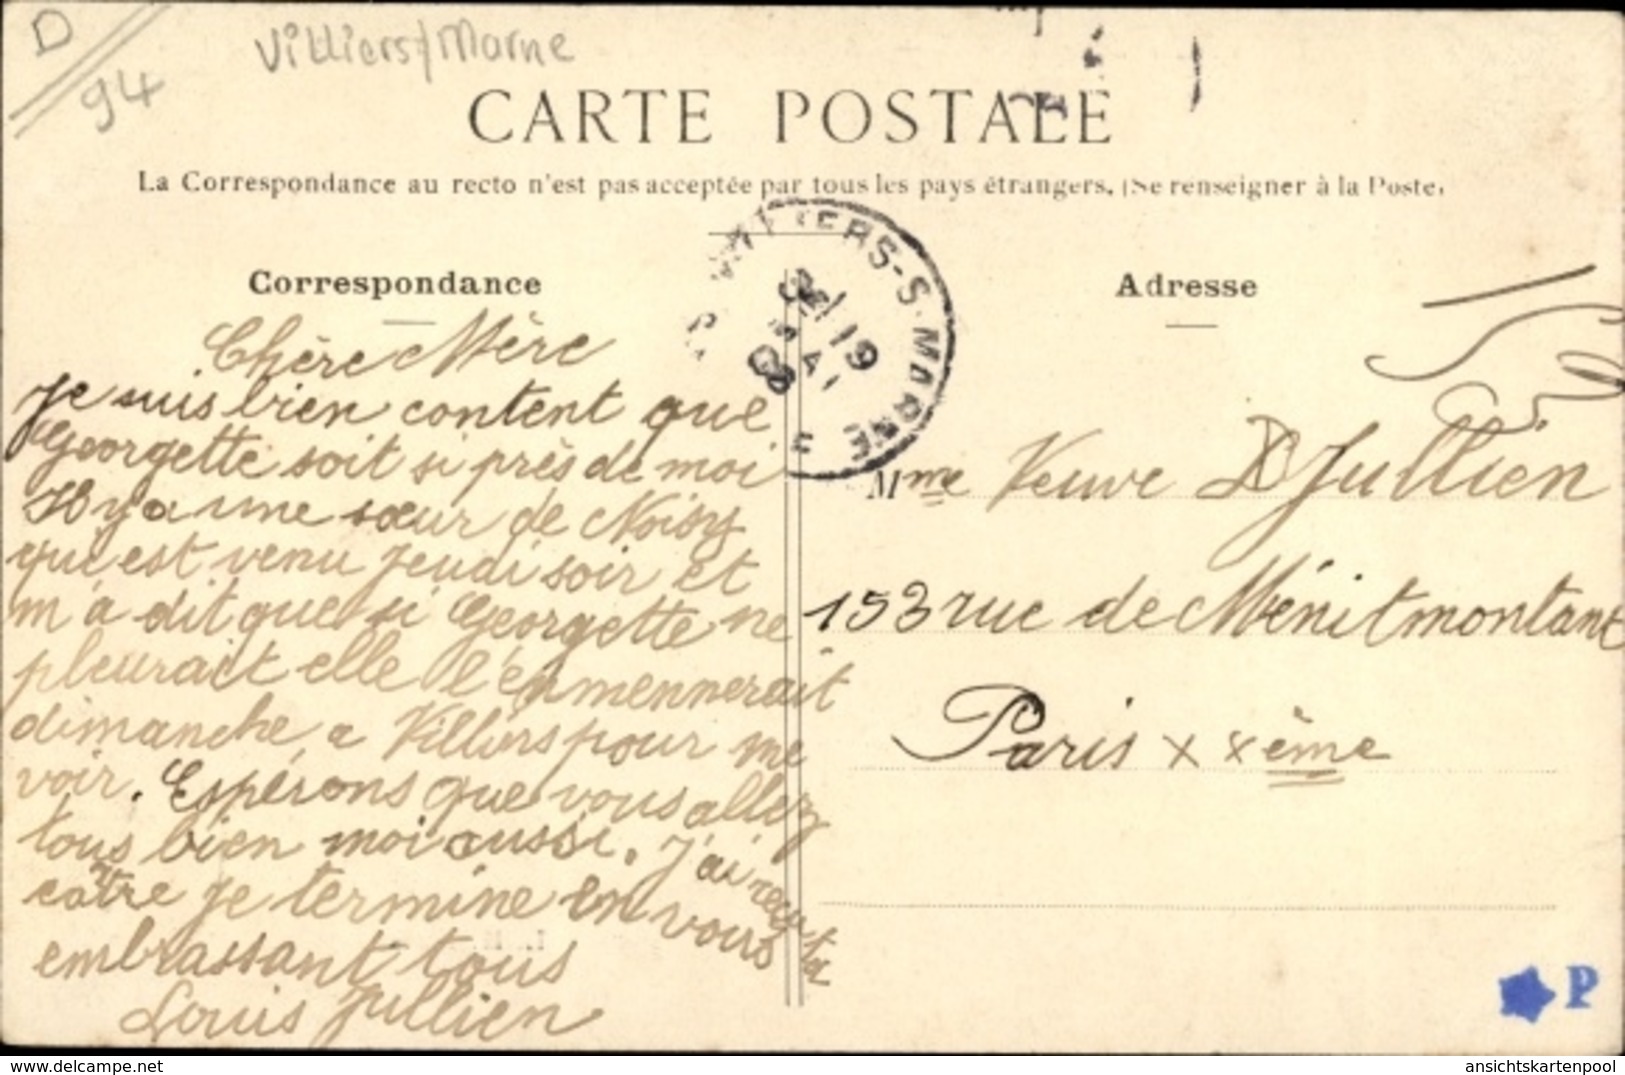 D
94
Villiers/Marne
CARTE POSTALE
La Correspondance au recto n'est pas acceptée par tous les pays étrangers. (Se renseigner à la Poste)
VILLIERS-S-MARNE
19
Correspondance
Adresse
Chère Mère
Je suis bien content que
Georgette soit si près de moi
Il y a une sœur de Noisy
qui est venu jeudi soir et
m'a dit que si Georgette ne
pleurait elle l'enmennerait
dimanche a Villiers pour me
voir. Espérons que vous allez
tous bien moi aussi. J'ai reçu ta
catre je termine en vous
embrassant tous
Louis Jullien
Mme Veuve Jullien
153 rue de Ménitmontant
Paris XXème
P
ansichtskartenpool